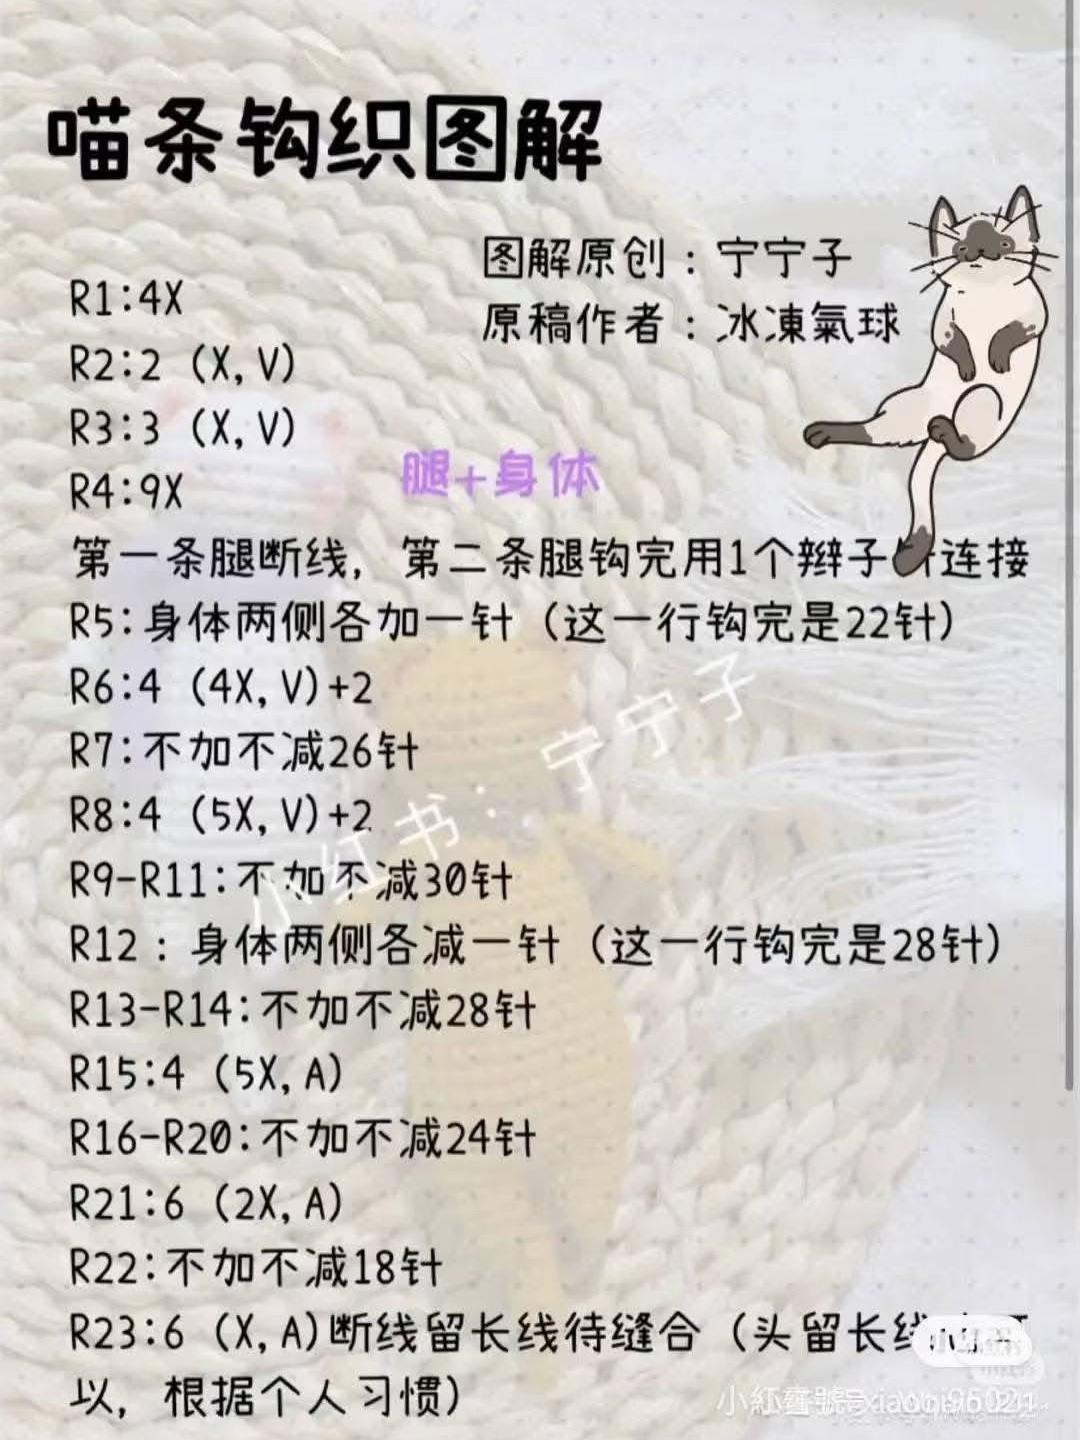 喵条钩织图解
图解原创：宁宁子
原稿作者：冰凍氣球
R1:4X
R2:2（X,V）
R3:3（X,V）
R4:9X
腿+身体
第一条腿断线，第二条腿钩完用1个辫子 连接
R5:身体两侧各加一针（这一行钩完是22针）
R6:4（4X,V)+2
R7:不加不减26针
R8:4（5X,V)+2
R9-R11:不加不减30针
R12：身体两侧各减一针（这一行钩完是28针）
R13-R14:不加不减28针
R15:4（5X,A）
R16-R20:不加不减24针
R21:6（2X,A）
R22:不加不减18针
R23:6（X,A)断线留长线待缝合（头留长线
以，根据个人习惯）
小红书：宁宁子
小红書